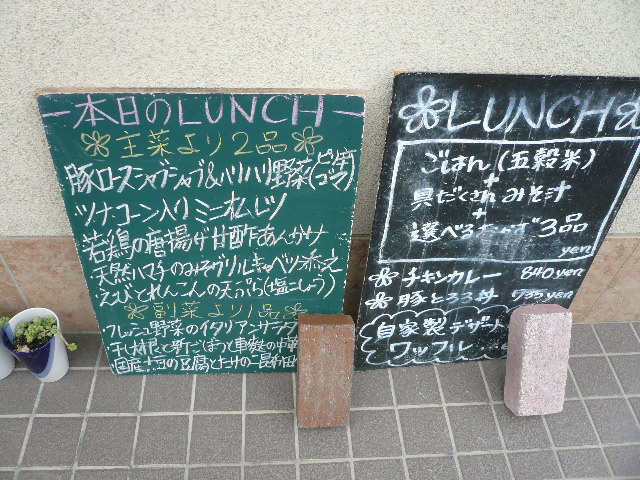 本日のLUNCH
主菜より2品
豚ロースシャブシャブ&パリパリ野菜
ツナコーン入りミニオムレツ
若鶏の唐揚げ甘酢あんかけ
天然ハマチのみそグリルキャベツ添え
えびとれんこんの天ぷら(塩こしょう)
副菜より1品
フレッシュ野菜のイタリアンサラダ
干し大根と新ごぼうと
国産大豆の豆腐と
LUNCH
ごはん(五穀米)
+
具だくさんみそ汁
+
選べるおかず3品
yen
チキンカレー 840yen
豚とろ丼 735yen
自家製デザート
ワッフル